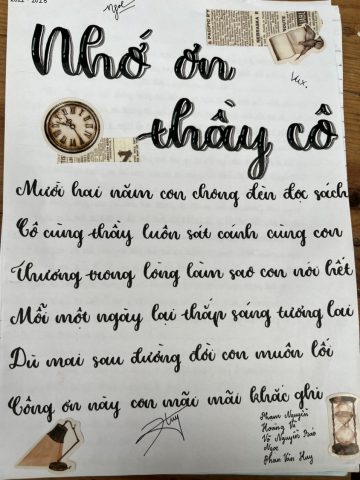 2022 - 2023
Ngọc
Nhớ ơn
thầy cô
Mười hai năm con chong đèn đọc sách
Cô cùng thầy luôn sát cánh cùng con
Thương trong lòng làm sao con nói hết
Mỗi một ngày lại thắp sáng tương lai
Dù mai sau đường đời con muôn lối
Công ơn này con mãi mãi khắc ghi
Huy
Phạm Nguyễn
Hoàng Vi
Võ Nguyễn Bảo
Ngọc
Phan Văn Huy